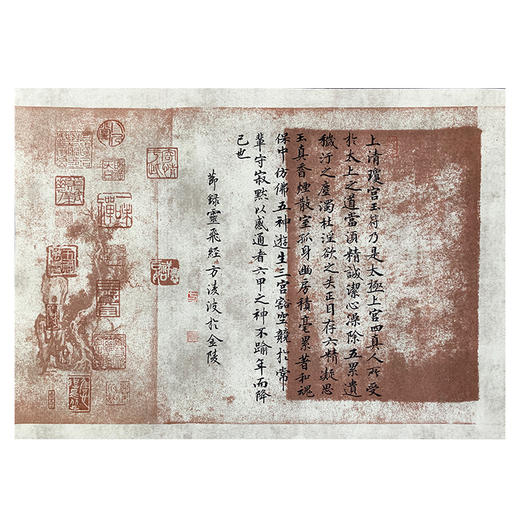 上清瓊宮玉符乃是太極上宮四真人所受
於太上之道當須精誠潔心澡除五累遺
穢汙之塵濁杜淫欲之失正目存六精凝思
玉真香煙散室孤身幽房積毫累著和魂
保中仿佛五神遊生三宮豁空競於常
輩守寂默以感通者六甲之神不踰年而降
己也
節錄靈飛經方淩波於金陵